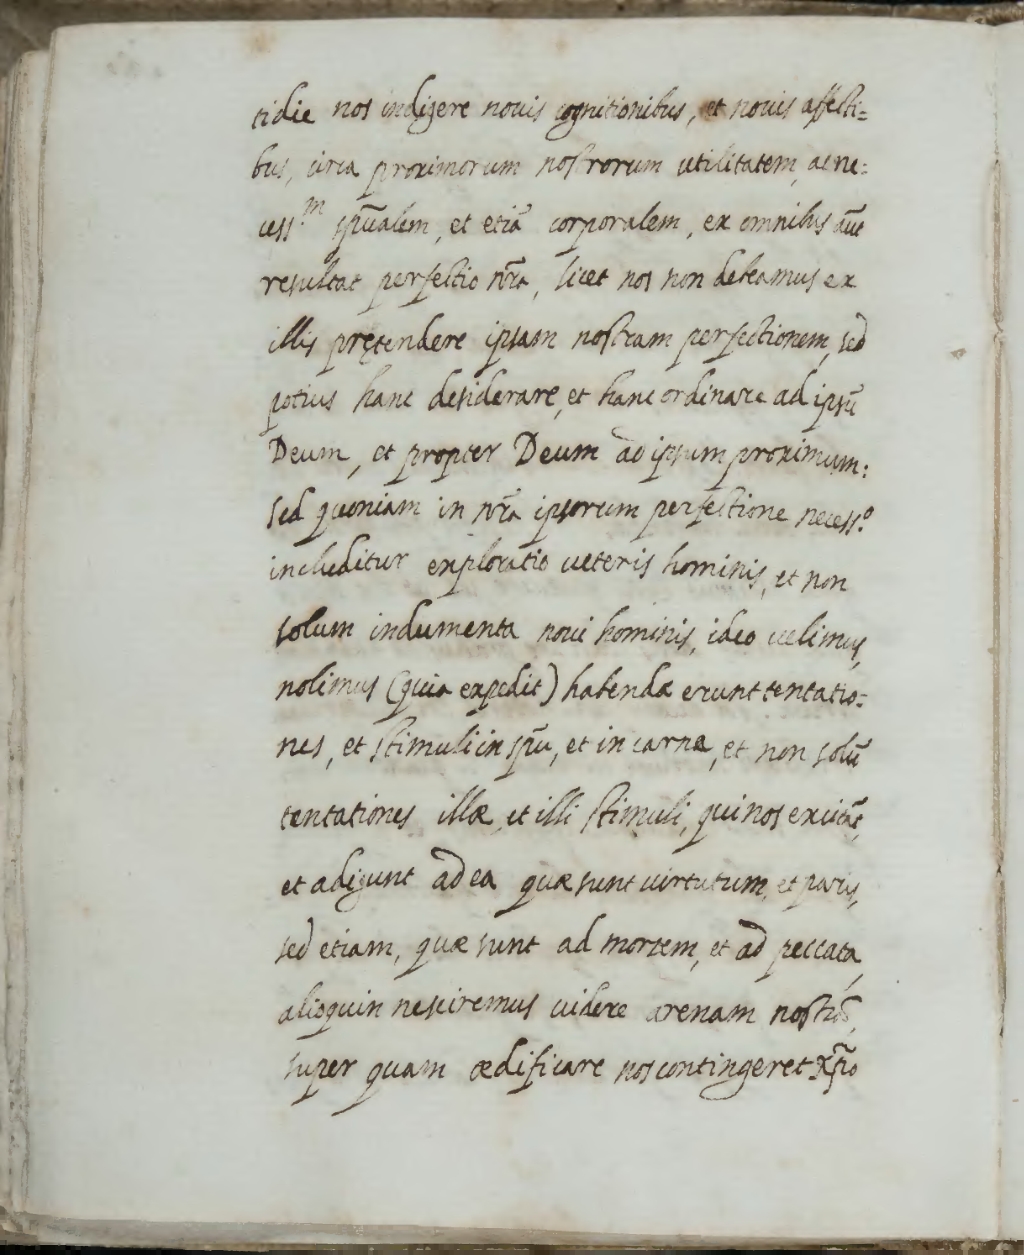 tidie nos indigere nouis cognitionibus, et nouis affecti=
bus, circa proximorum nostrorum utilitatem, ac ne:
cess.m sp̄ualem, et etiā corporalem, ex omnibus aūt
resultat perfectio nr̄a, licet nos non debeamus ex
illis prętendere ipsam nostram perfectionem, sed
potius hanc desiderare, et hanc ordinare ad ipsū
Deum, et propter Deum ad ipsum proximum:
sed quoniam in nr̄a ipsorum perfectione necess.o
includitur expoliatio ueteris hominis, et non
solum indumenta noui hominis, ideo uelimus,
nolimus (quia expedit) habendæ erunt tentatio=
nes, et stimuli in sp̄u, et in carne, et non solū
tentationes illæ, et illi stimuli, qui nos excitāt,
et adigunt ad ea quæ sunt uirtutum, et pacis,
sed etiam, quæ sunt ad mortem, et ad peccata,
alioquin nesciremus uidere arenam nostrā,
super quam ædificare nos contingeret xp̄o